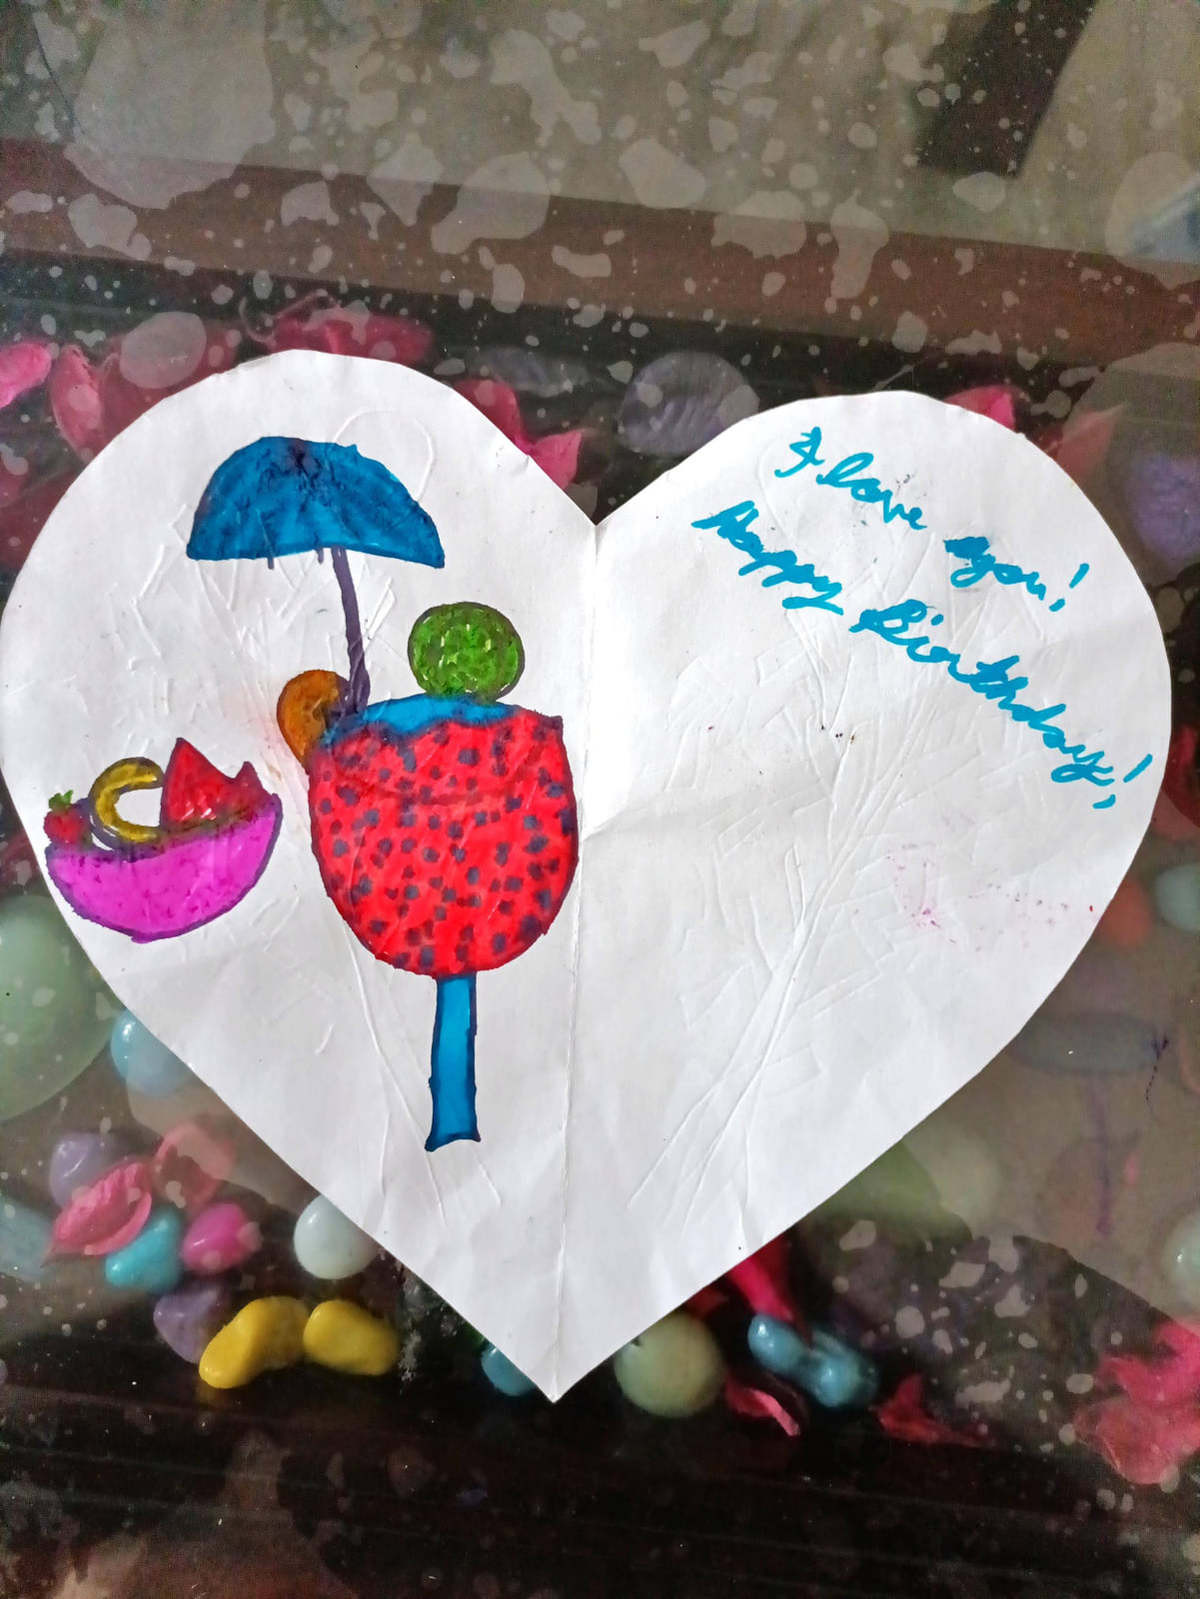 I love you!
Happy Birthday!